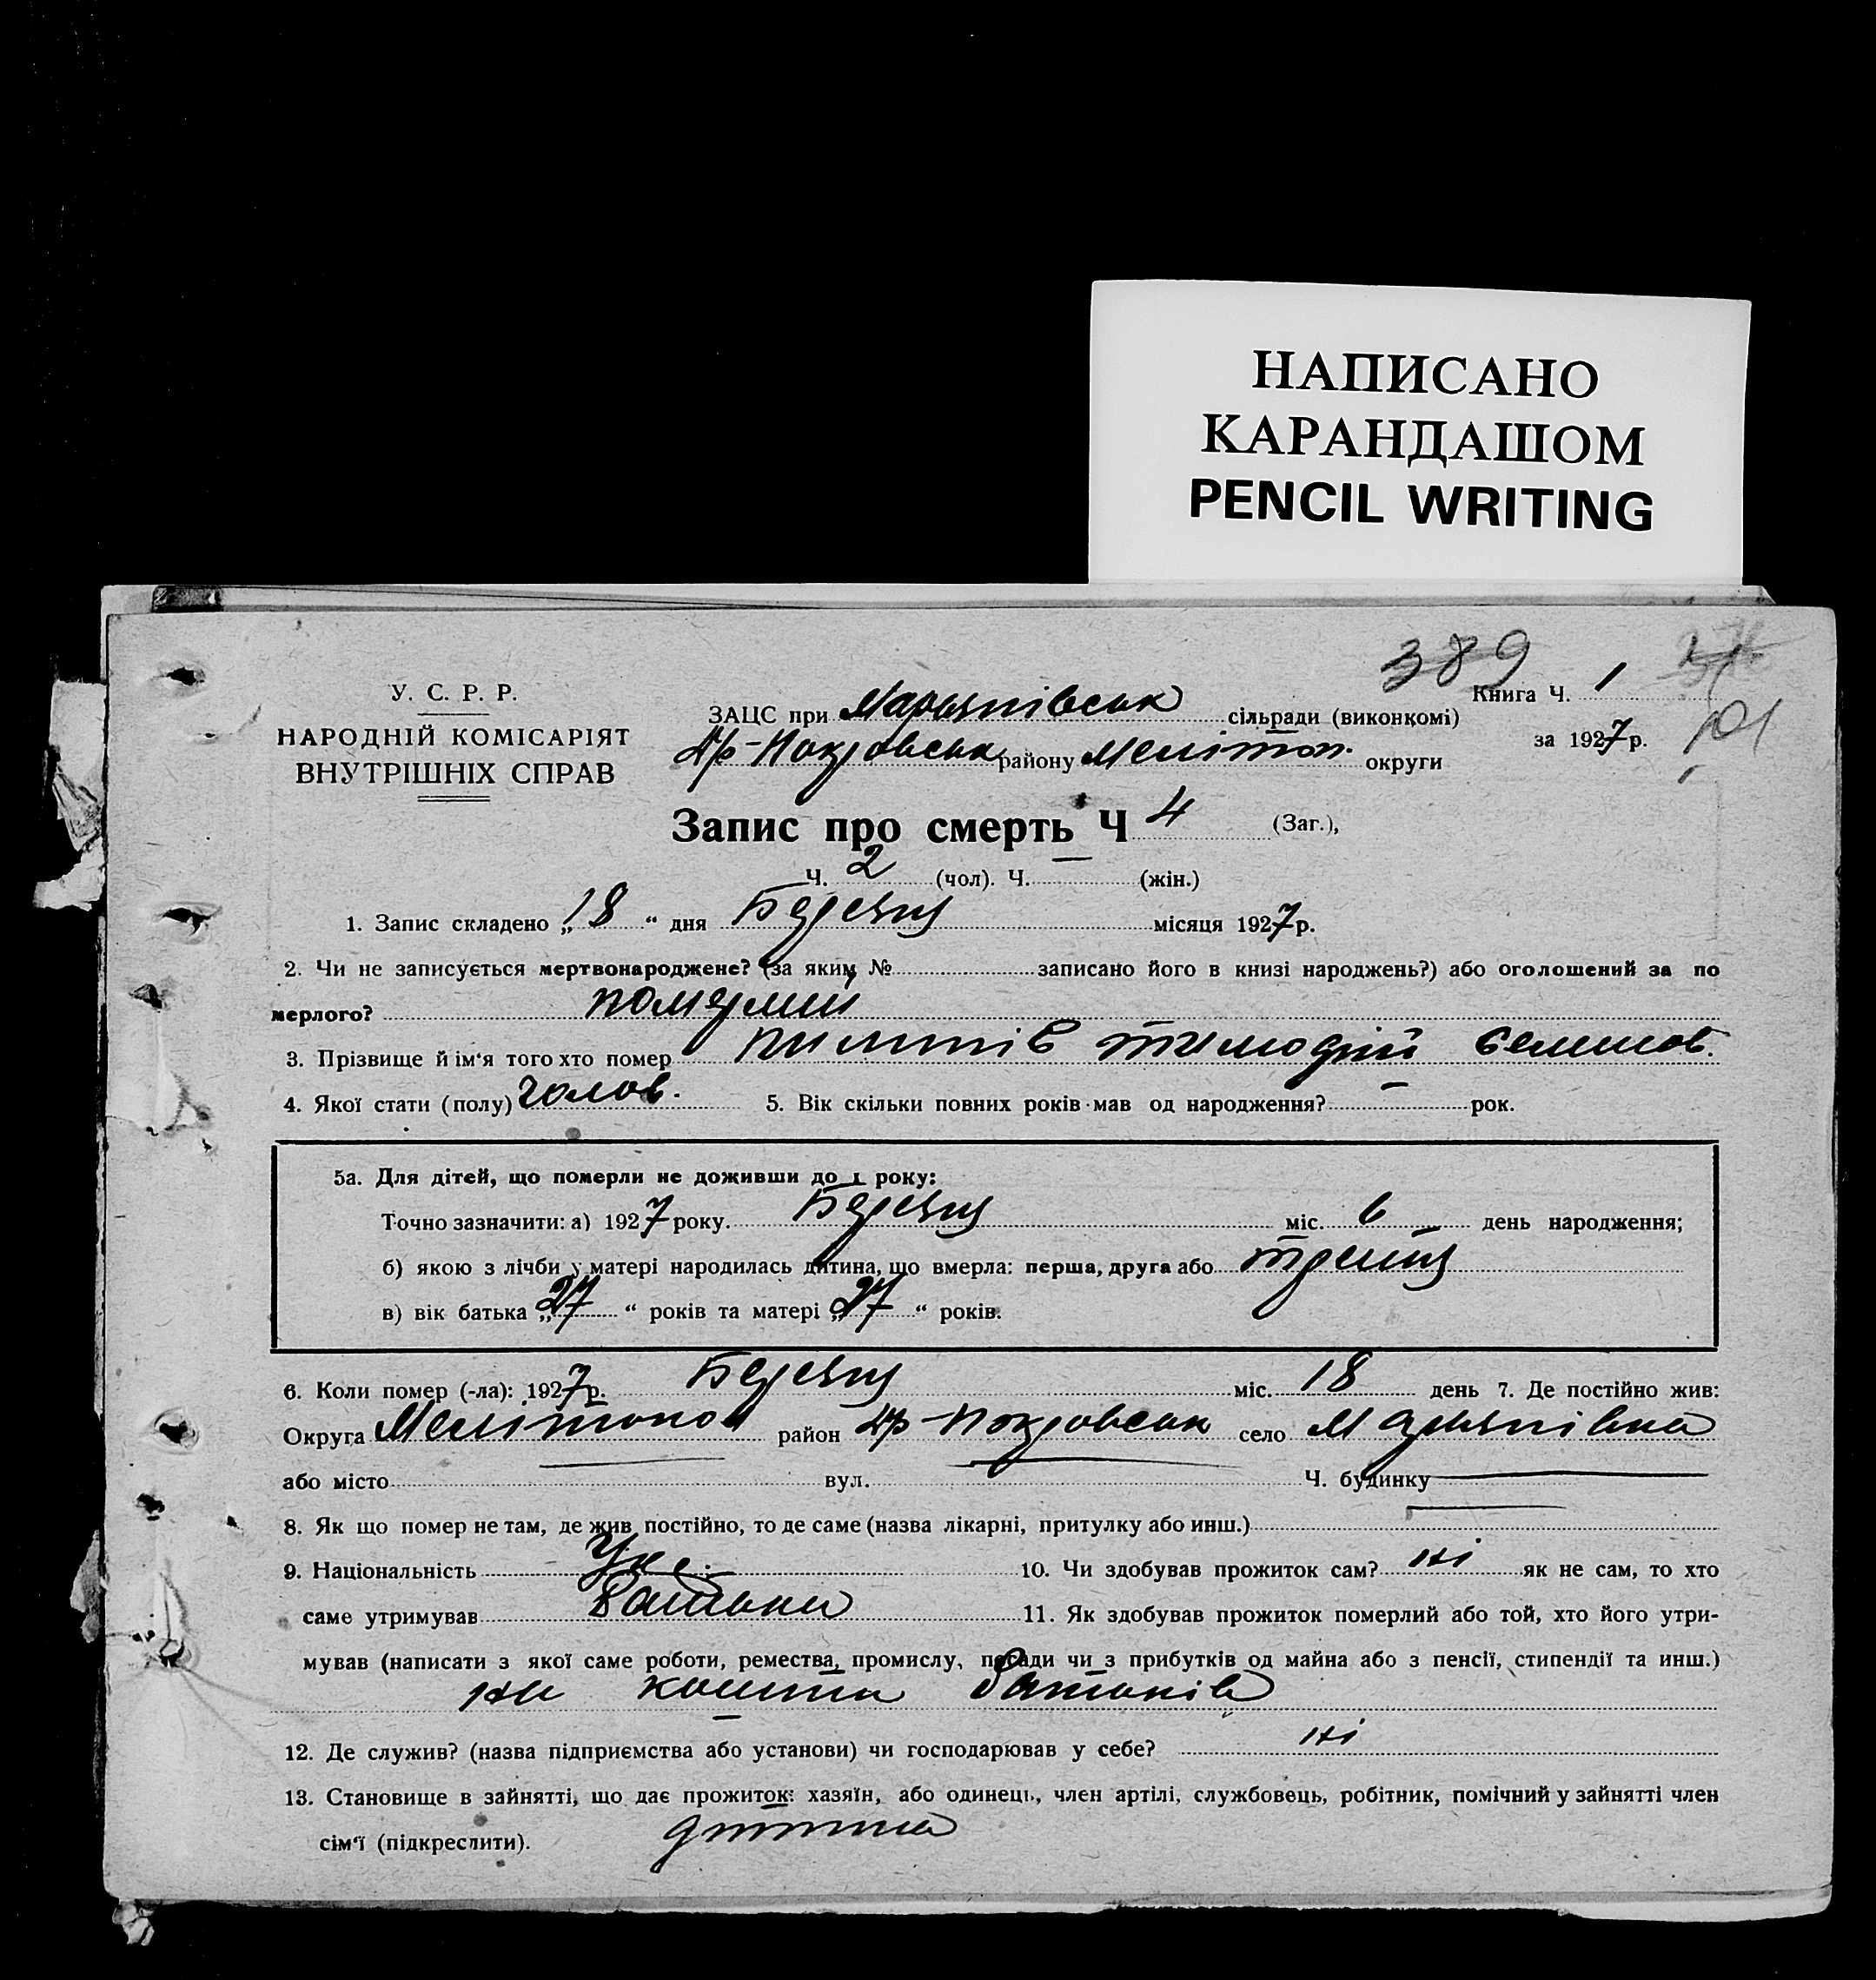 НАПИСАНО
КАРАНДАШОМ
PENCIL WRITING
389
У. С. Р. Р.
НАРОДНІЙ КОМІСАРІЯТ
ВНУТРІШНІХ СПРАВ
Книга Ч. 1
за 1927 р.
101
ЗАЦС при Мар'янівськ сільради (виконкомі)
Др-Покровськ району Мелітоп. округи
Запис про смерть Ч 4 (Заг.),
Ч. 2 (чол). Ч. — (жін.)
1. Запис складено „18 “ дня Березня місяця 1927 р.
2. Чи не записується мертвонароджене? (за яким № записано його в книзі народжень?) або оголошений за по
мерлого? померлий
3. Прізвище й ім'я того хто помер тимофій семенов.
4. Якої стати (полу) чолов. 5. Вік скільки повних років мав од народження? — рок.
5а. Для дітей, що померли не доживши до 1 року:
Точно зазначити: а) 1927 року. Березня міс. 6 день народження;
б) якою з лічби у матері народилась дитина, що вмерла: перша, друга або третя
в) вік батька „27 “ років та матері „27 “ років.
6. Коли помер (-ла): 1927 р. Березня міс. 18 день 7. Де постійно жив:
Округа Мелітопол район Др-Покровськ село Мар'янівка
або місто — вул. — Ч. будинку —
8. Як що помер не там, де жив постійно, то де саме (назва лікарні, притулку або инш.) —
9. Національність Укр. 10. Чи здобував прожиток сам? ні як не сам, то хто
саме утримував Батьки 11. Як здобував прожиток померлий або той, хто його утри-
мував (написати з якої саме роботи, ремества, промислу, посади чи з прибутків од майна або з пенсії, стипендії та инш.)
на кошти батьків
12. Де служив? (назва підприємства або установи) чи господарював у себе? ні
13. Становище в зайнятті, що дає прожиток: хазяїн, або одинець, член артілі, службовець, робітник, помічний у зайнятті член
сім'ї (підкреслити). дитина